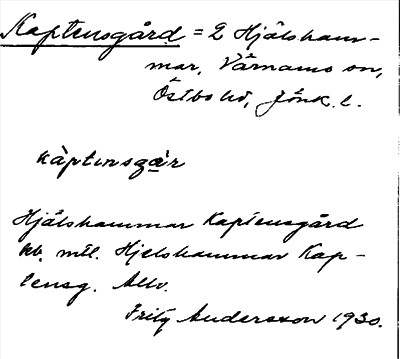 Kaptensgård = 2 Hjälsham-
mar, Värnamo sn,
Östbo hd, Jönk. l.
kàptənsgɑ̀r
Hjälshammar Kaptensgård
kb. mtl. Hjelshammar Kap-
tensg. Allv.
Fritz Andersson 1930.